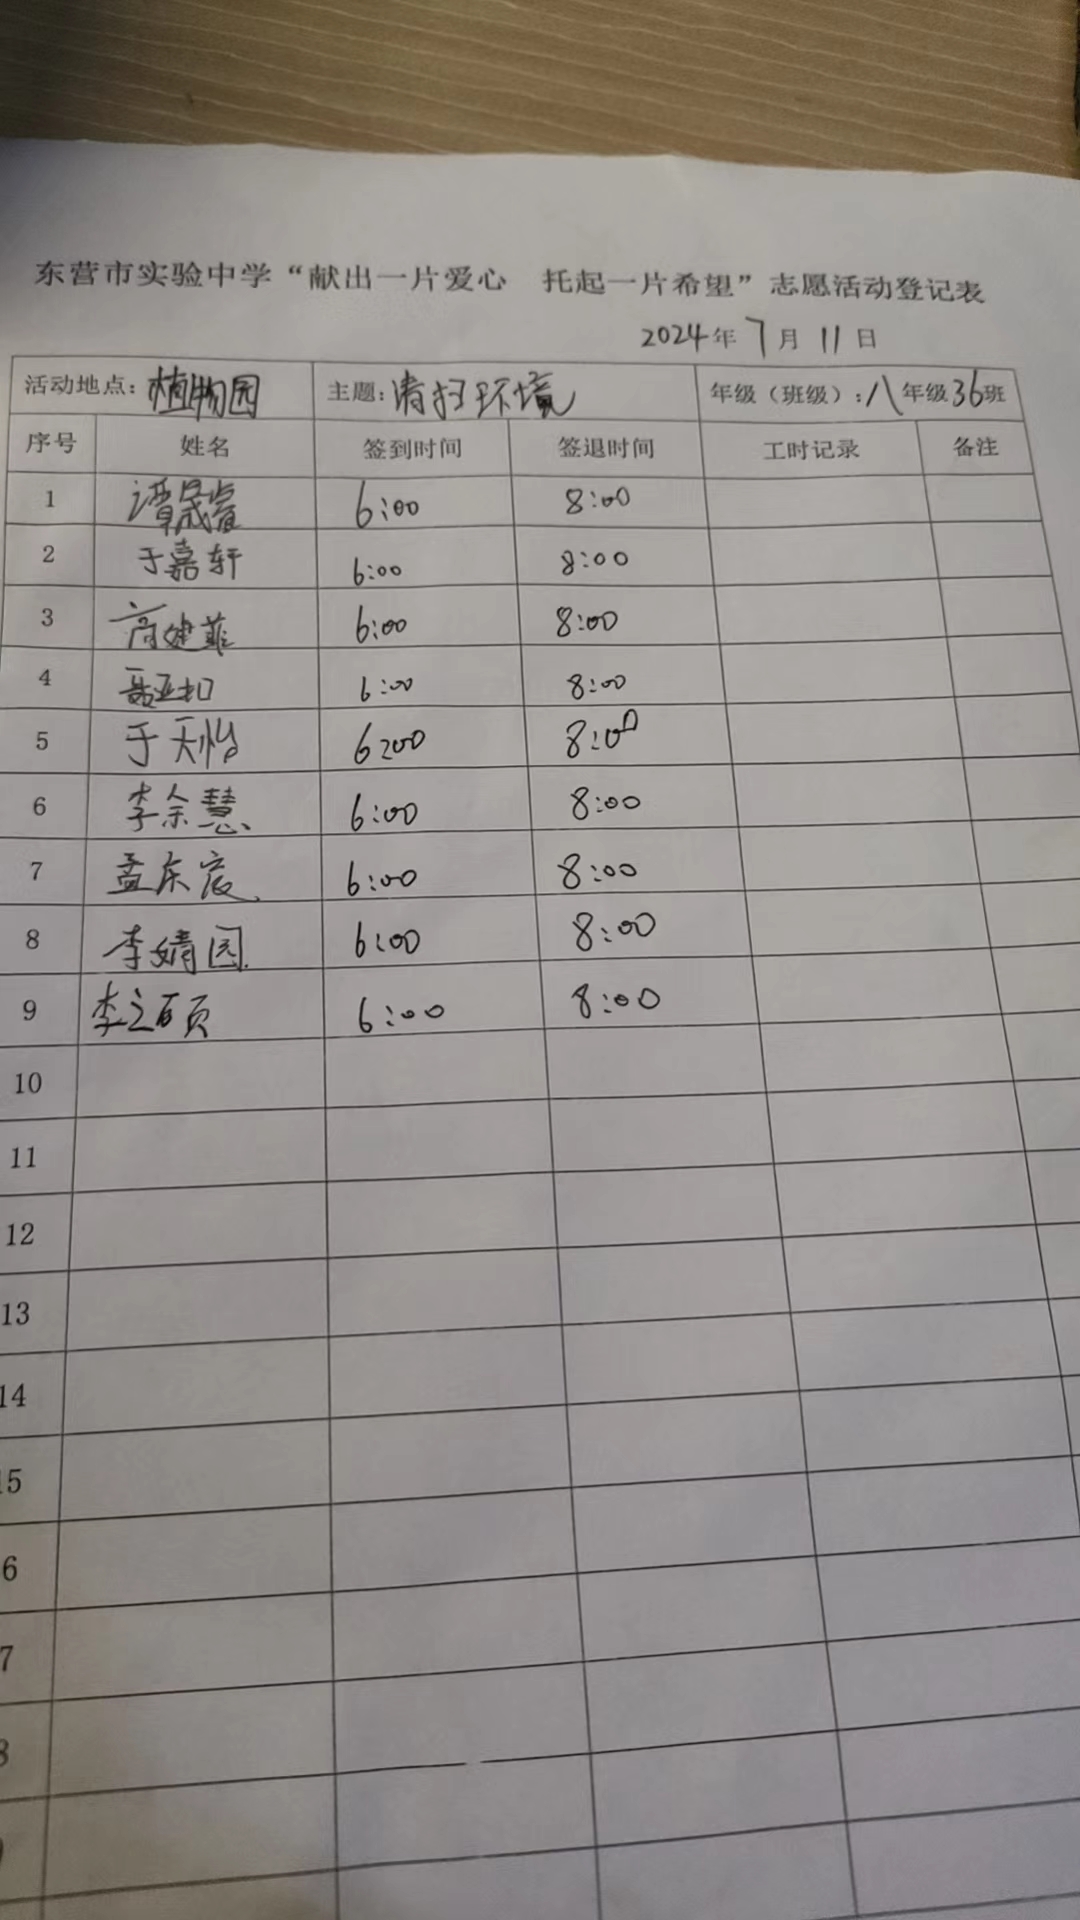 东营市实验中学“献出一片爱心 托起一片希望”志愿活动登记表
2024年7月11日
活动地点：植物园 主题：清扫环境 年级（班级）：八年级36班
序号 姓名 签到时间 签退时间 工时记录 备注
1 谭晟睿 6:00 8:00
2 于嘉轩 6:00 8:00
3 高健菲 6:00 8:00
4 6:00 8:00
5 于天怡 6:00 8:00
6 李余慧 6:00 8:00
7 孟东宸 6:00 8:00
8 李婧园 6:00 8:00
9 李之硕 6:00 8:00
10
11
12
13
14
15
6
7
8